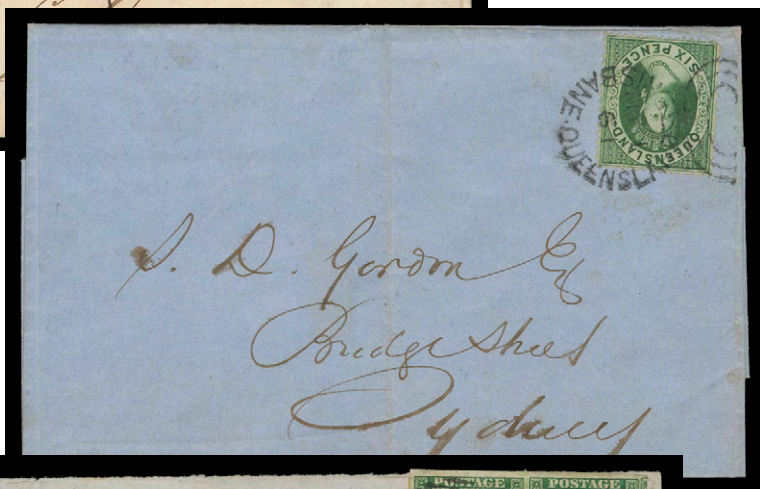 SIX PENCE
QUEENSLAND
BANE.QUEENSLA
S. D. Gordon Esq
Bridge Street
Sydney
POSTAGE POSTAGE